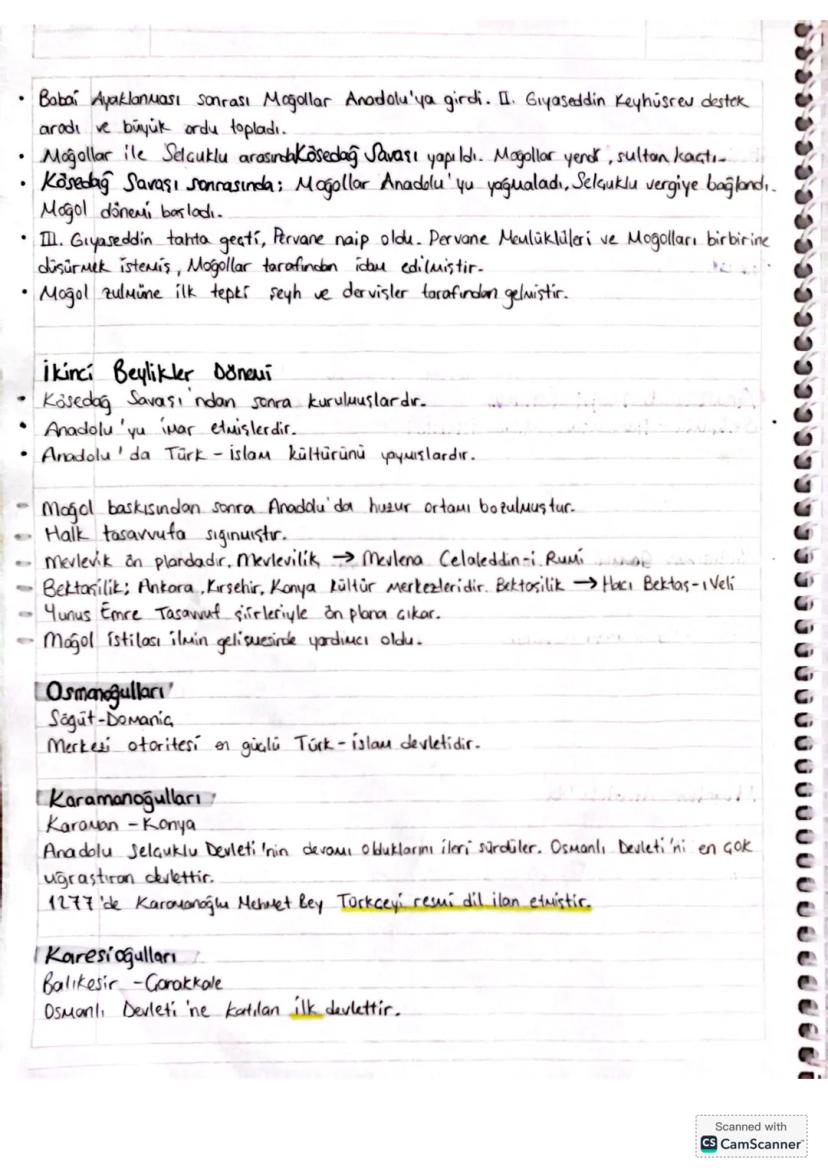 • Babai Ayaklanması sonrası Moğollar Anadolu'ya girdi. II. Gıyaseddin Keyhüsrev destek
aradı ve büyük ordu topladı.
• Moğollar ile Selçuklu arasında Kösedağ Savaşı yapıldı. Moğollar yendi, sultan kaçtı.
• Kösedağ Savaşı sonrasında; Moğollar Anadolu'yu yağmaladı, Selçuklu vergiye bağlandı.
Moğol dönemi başladı.
• III. Gıyaseddin tahta geçti, Pervane naip oldu. Pervane Memlüklüleri ve Moğolları birbirine
düşürmek istemiş, Moğollar tarafından idam edilmiştir.
• Moğol zulmüne ilk tepki şeyh ve dervişler tarafından gelmiştir.
İkinci Beylikler Dönemi
• Kösedağ Savaşı'ndan sonra kurulmuşlardır.
• Anadolu'yu imar etmişlerdir.
• Anadolu'da Türk-islam kültürünü yaymışlardır.
- Moğol baskısından sonra Anadolu'da huzur ortamı bozulmuştur.
- Halk tasavvufa sığınmıştır.
- Mevlevik ön plandadır. Mevlevilik → Mevlena Celaleddin-i Rumi
- Bektaşilik; Ankara, Kırşehir, Konya kültür merkezleridir. Bektaşilik → Hacı Bektaş-ı Veli
- Yunus Emre Tasavvuf şiirleriyle ön plana çıkar.
- Moğol istilası ilmin gelişmesinde yardımcı oldu.
Osmanoğulları
Söğüt-Domaniç
Merkezi otoritesi en güçlü Türk-islam devletidir.
Karamanoğulları
Karaman - Konya
Anadolu Selçuklu Devleti'nin devamı olduklarını ileri sürdüler. Osmanlı Devleti'ni en çok
uğraştıran devlettir.
1277'de Karamanoğlu Mehmet Bey Türkçeyi resmi dil ilan etmiştir.
Karesioğulları
Balıkesir - Çanakkale
Osmanlı Devleti'ne katılan ilk devlettir.
Scanned with
CS CamScanner